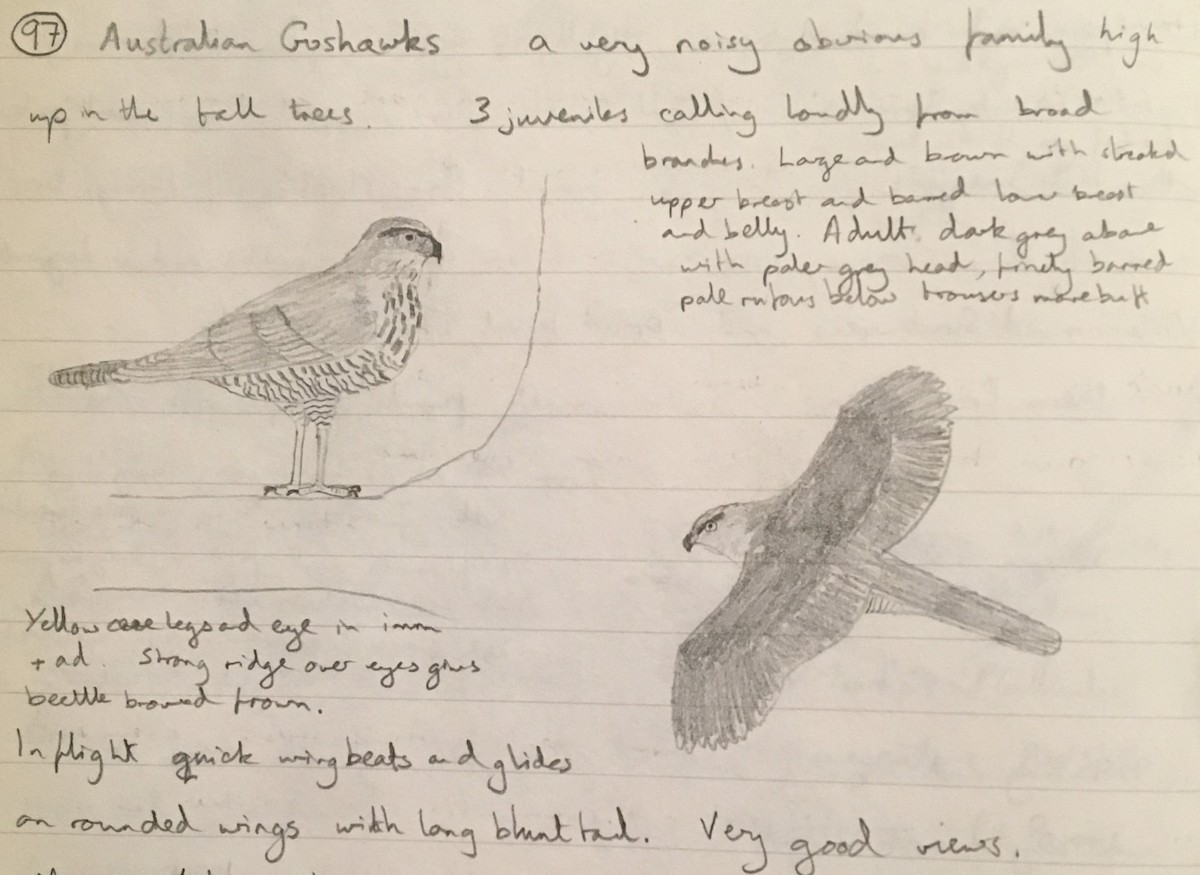 97 Australian Goshawks a very noisy obvious family high
up in the tall trees. 3 juveniles calling loudly from broad
branches. Large and brown with streaked
upper breast and barred lower breast
and belly. Adult dark grey above
with paler grey head, finely barred
pale rufous below trousers more buff
Yellow cere legs and eye in imm
+ ad. Strong ridge over eyes gives
beetle browed frown.
In flight quick wing beats and glides
on rounded wings with long blunt tail. Very good views.